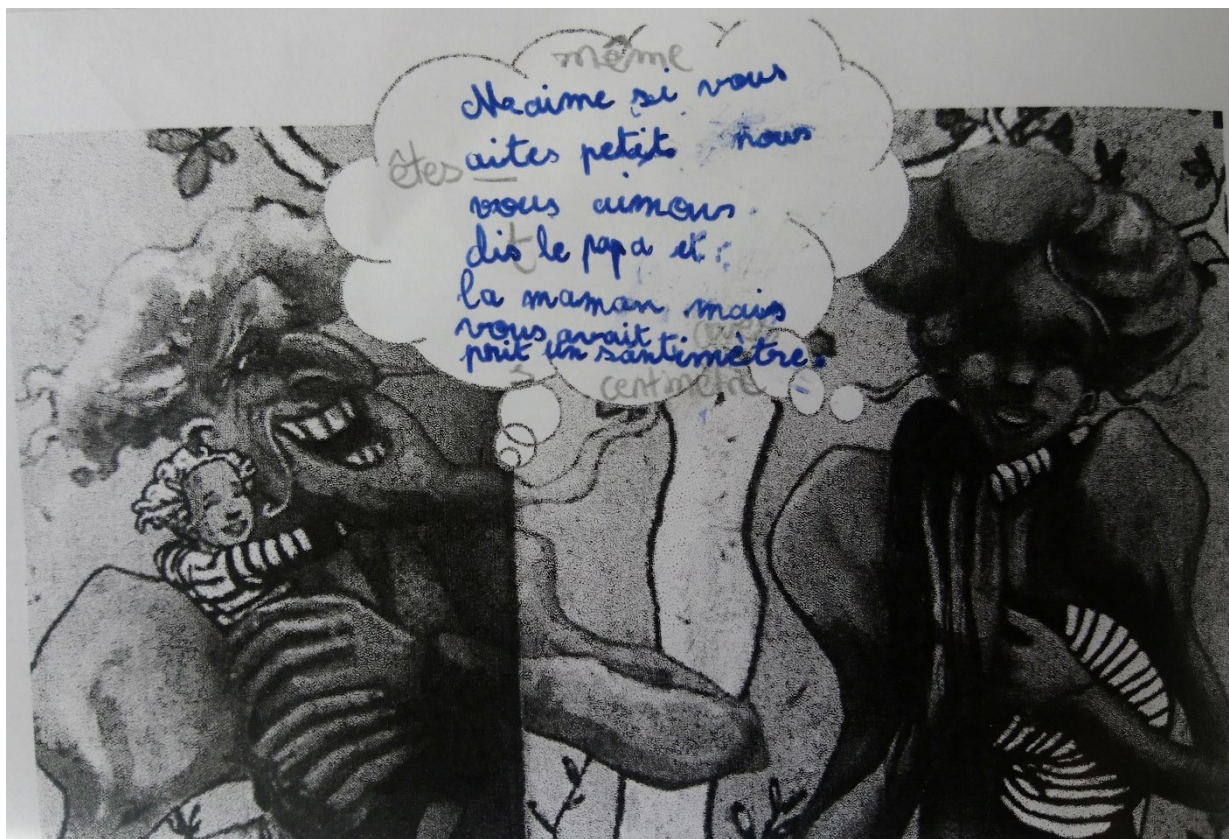 même
Meaime si vous
êtes aites petit nous
vous aimons.
dis le papa et
t
la maman mais
vous avait
prit un santimètre.
s centimètre